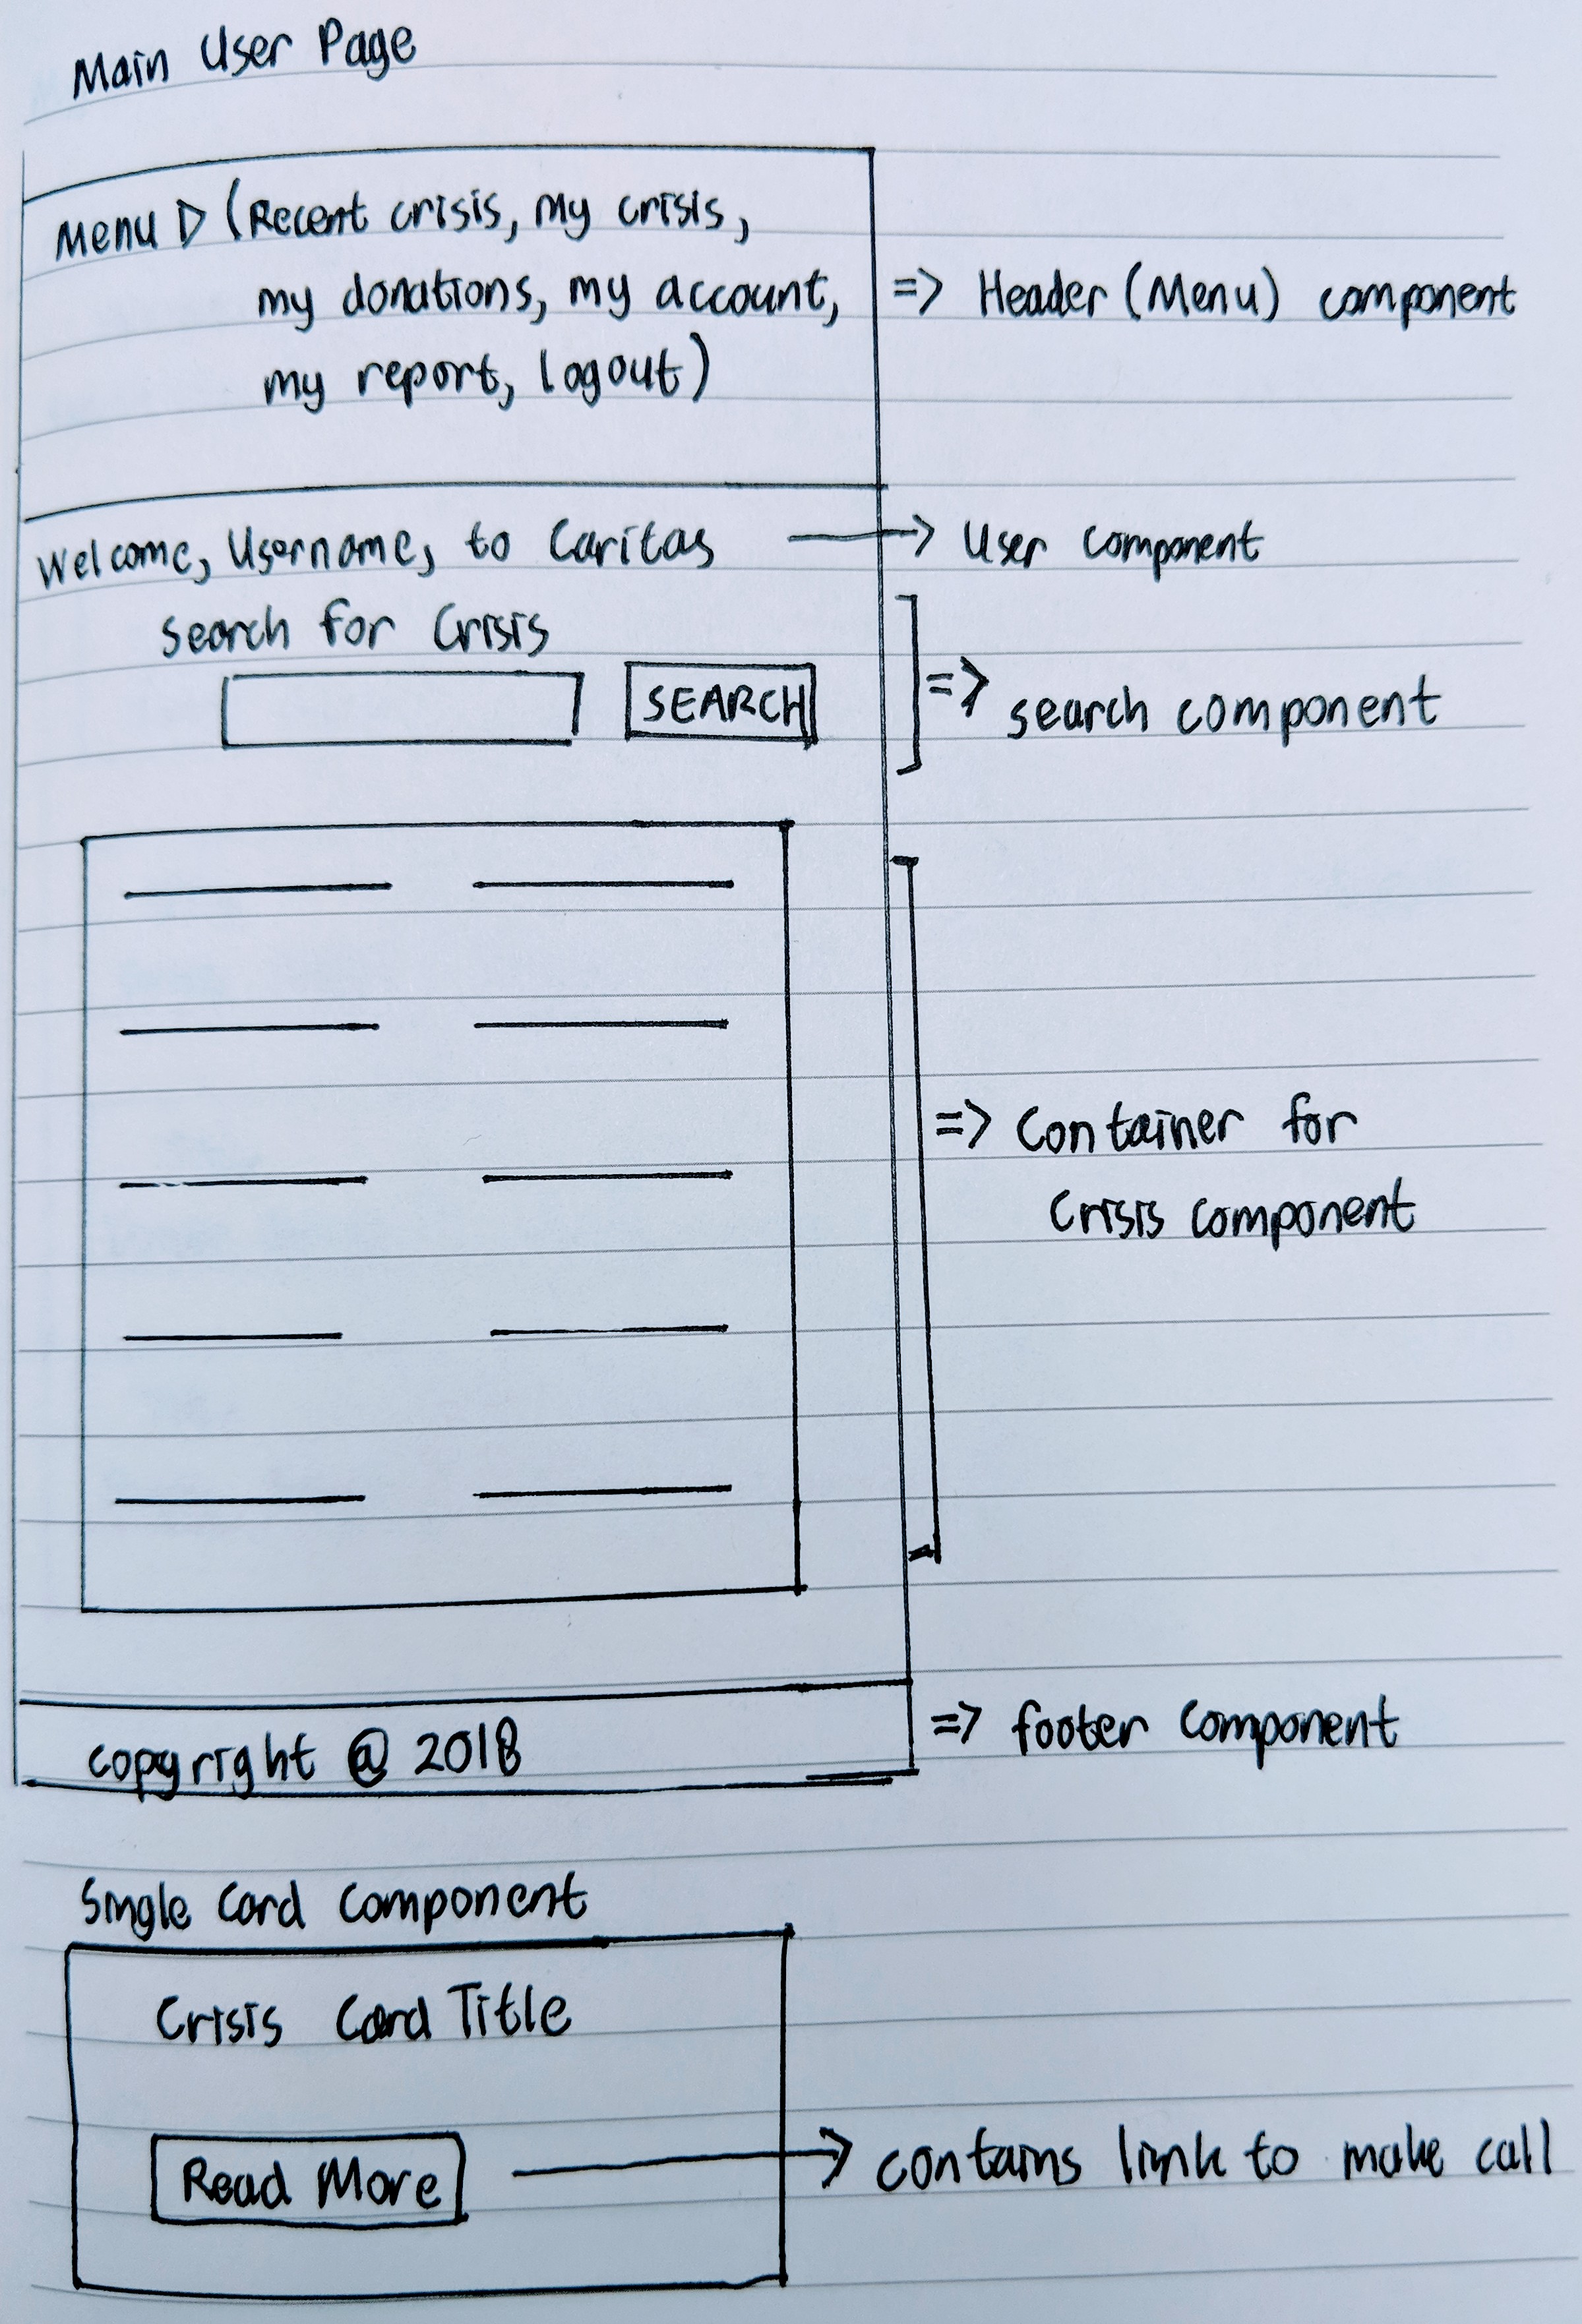 Main User Page
Menu ▷ (Recent crisis, my crisis,
my donations, my account,
my report, logout)
=> Header (Menu) component
Welcome, Username, to Caritas → User component
Search for Crisis
SEARCH
=> search component
=> Container for
Crisis component
copyright @ 2018
=> footer component
Single Card Component
Crisis Card Title
Read More → contains link to make call